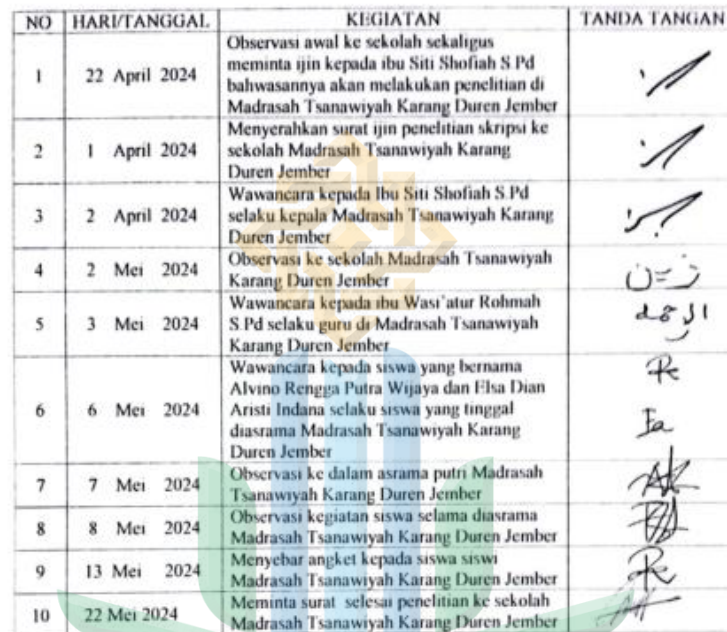 NO HARI/TANGGAL KEGIATAN TANDA TANGAN
1 22 April 2024 Observasi awal ke sekolah sekaligus
meminta ijin kepada ibu Siti Shofiah S.Pd
bahwasannya akan melakukan penelitian di
Madrasah Tsanawiyah Karang Duren Jember
2 1 April 2024 Menyerahkan surat ijin penelitian skripsi ke
sekolah Madrasah Tsanawiyah Karang
Duren Jember
3 2 April 2024 Wawancara kepada Ibu Siti Shofiah S.Pd
selaku kepala Madrasah Tsanawiyah Karang
Duren Jember
4 2 Mei 2024 Observasi ke sekolah Madrasah Tsanawiyah
Karang Duren Jember
5 3 Mei 2024 Wawancara kepada ibu Wasi'atur Rohmah
S.Pd selaku guru di Madrasah Tsanawiyah
Karang Duren Jember
6 6 Mei 2024 Wawancara kepada siswa yang bernama
Alvino Rengga Putra Wijaya dan Elsa Dian
Aristi Indana selaku siswa yang tinggal
diasrama Madrasah Tsanawiyah Karang
Duren Jember
7 7 Mei 2024 Observasi ke dalam asrama putri Madrasah
Tsanawiyah Karang Duren Jember
8 8 Mei 2024 Observasi kegiatan siswa selama diasrama
Madrasah Tsanawiyah Karang Duren Jember
9 13 Mei 2024 Menyebar angket kepada siswa siswi
Madrasah Tsanawiyah Karang Duren Jember
10 22 Mei 2024 Meminta surat selesai penelitian ke sekolah
Madrasah Tsanawiyah Karang Duren Jember